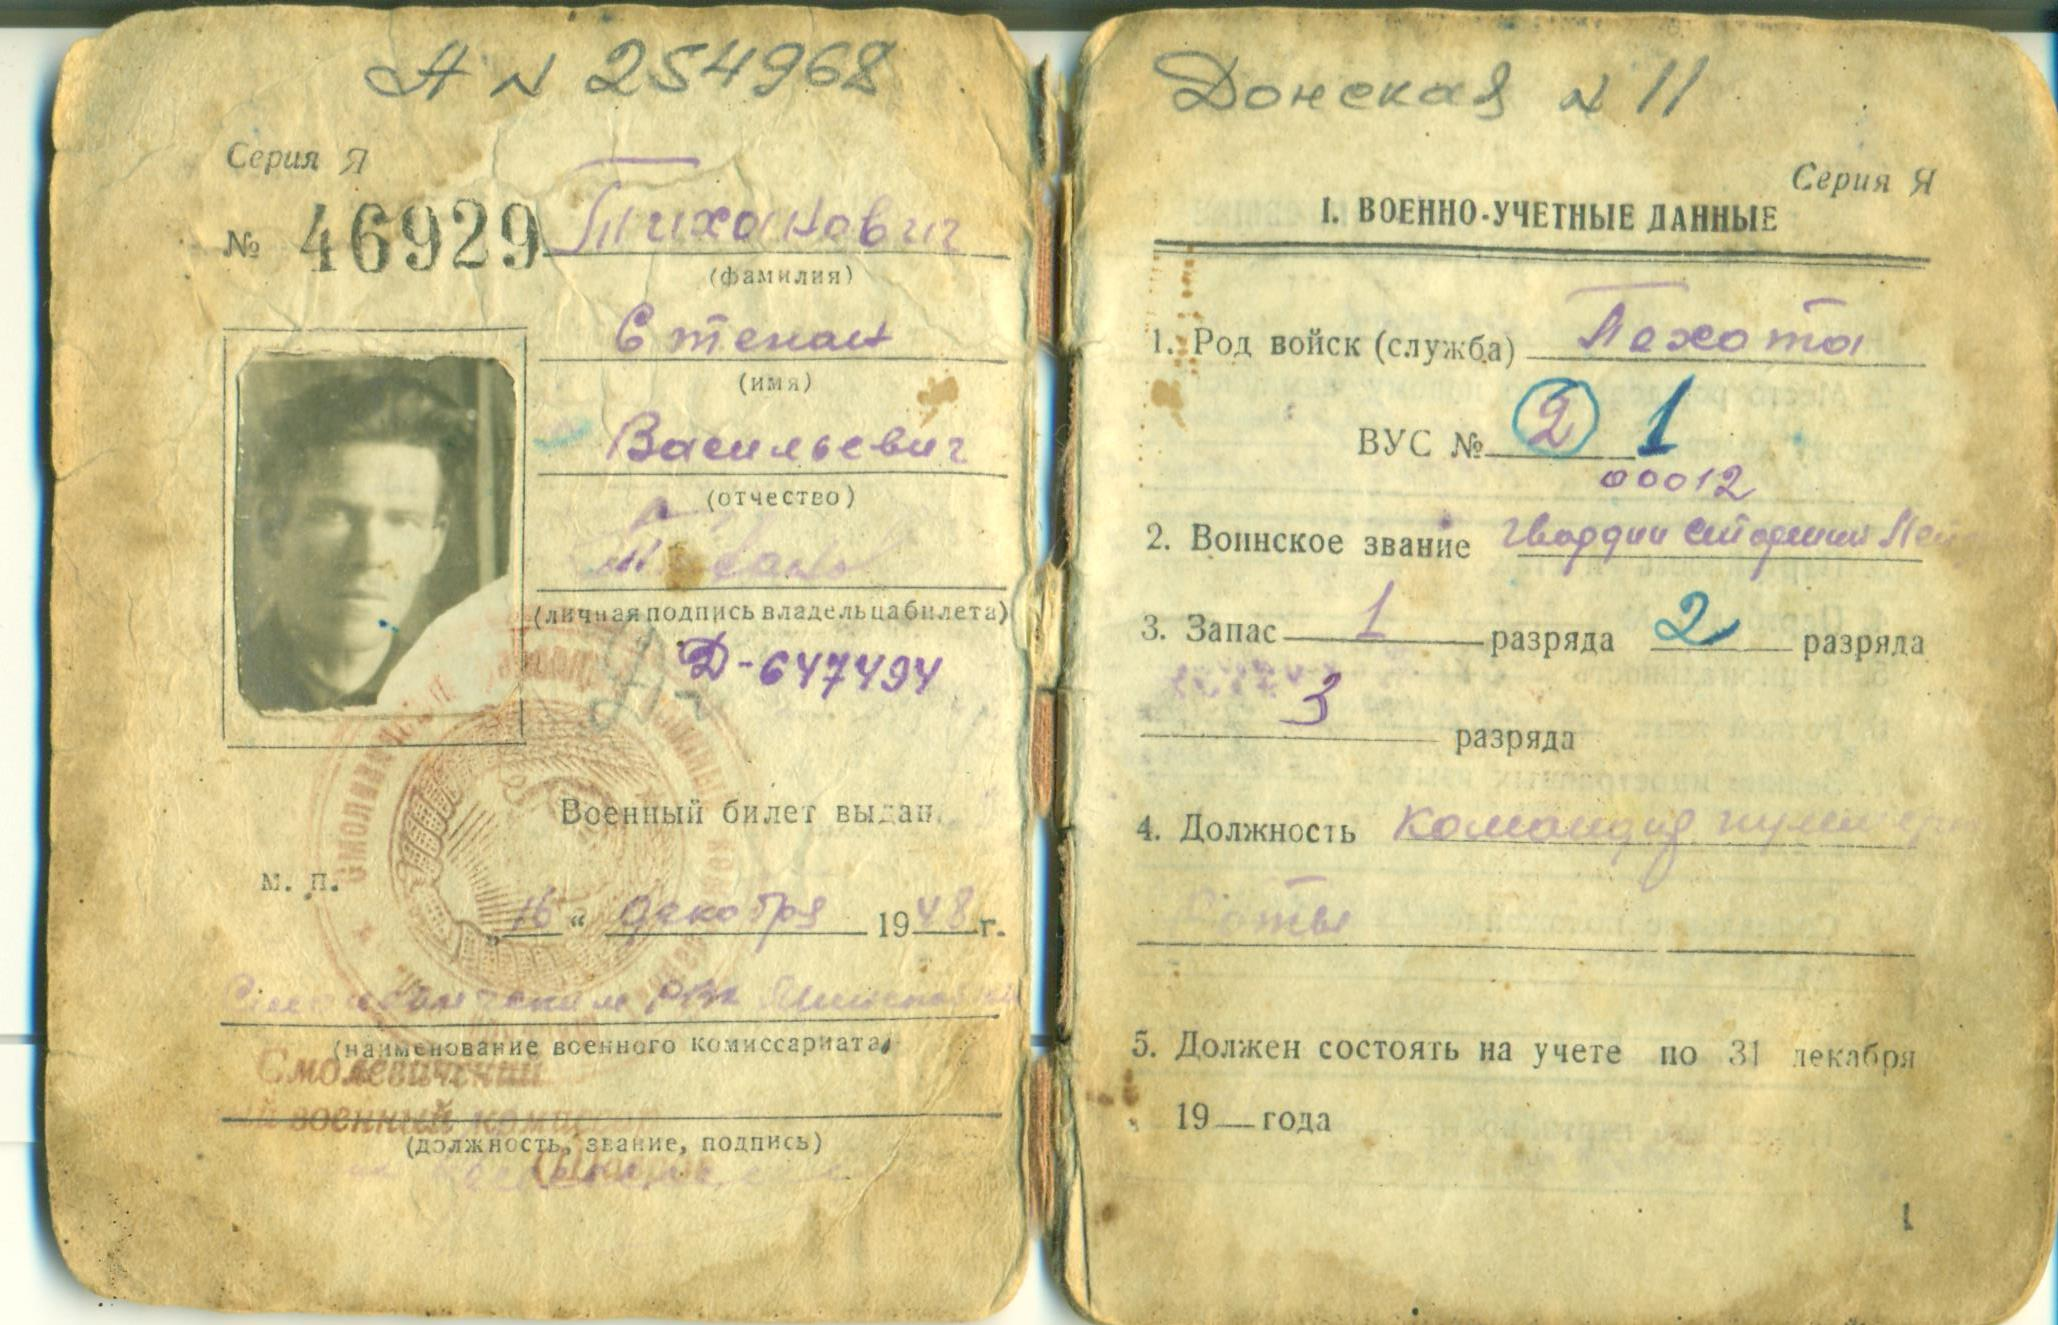 А N 254968
Серия Я
№ 46929
Тиханович
(фамилия)
Степан
(имя)
Васильевич
(отчество)
(личная подпись владельца билета)
Д-647494
Военный билет выдан
М. П.
„16“ декабря 1948 г.
РВК
(наименование военного комиссариата)
Смолевичский
военный комиссар
(должность, звание, подпись)
Донская N 11
Серия Я
I. ВОЕННО-УЧЕТНЫЕ ДАННЫЕ
1. Род войск (служба) Пехота
ВУС № 2 1
00012
2. Воинское звание Гвардии старший
3. Запас 1 разряда 2 разряда
3 разряда
4. Должность Командир пулеметной
роты
5. Должен состоять на учете по 31 декабря
19 года
1